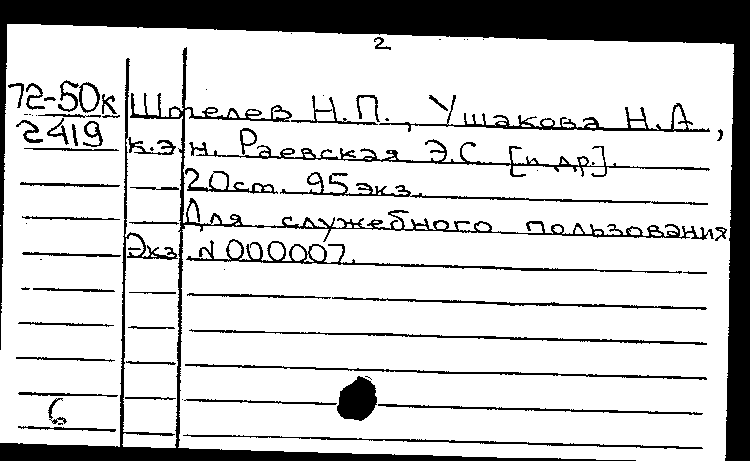 2
72-50к Шмелев Н.П., Ушакова Н.А.,
2419 к.э.н. Раевская Э.С. [и др.].
20 ст. 95 экз.
Для служебного пользования
Экз. № 000007.
6